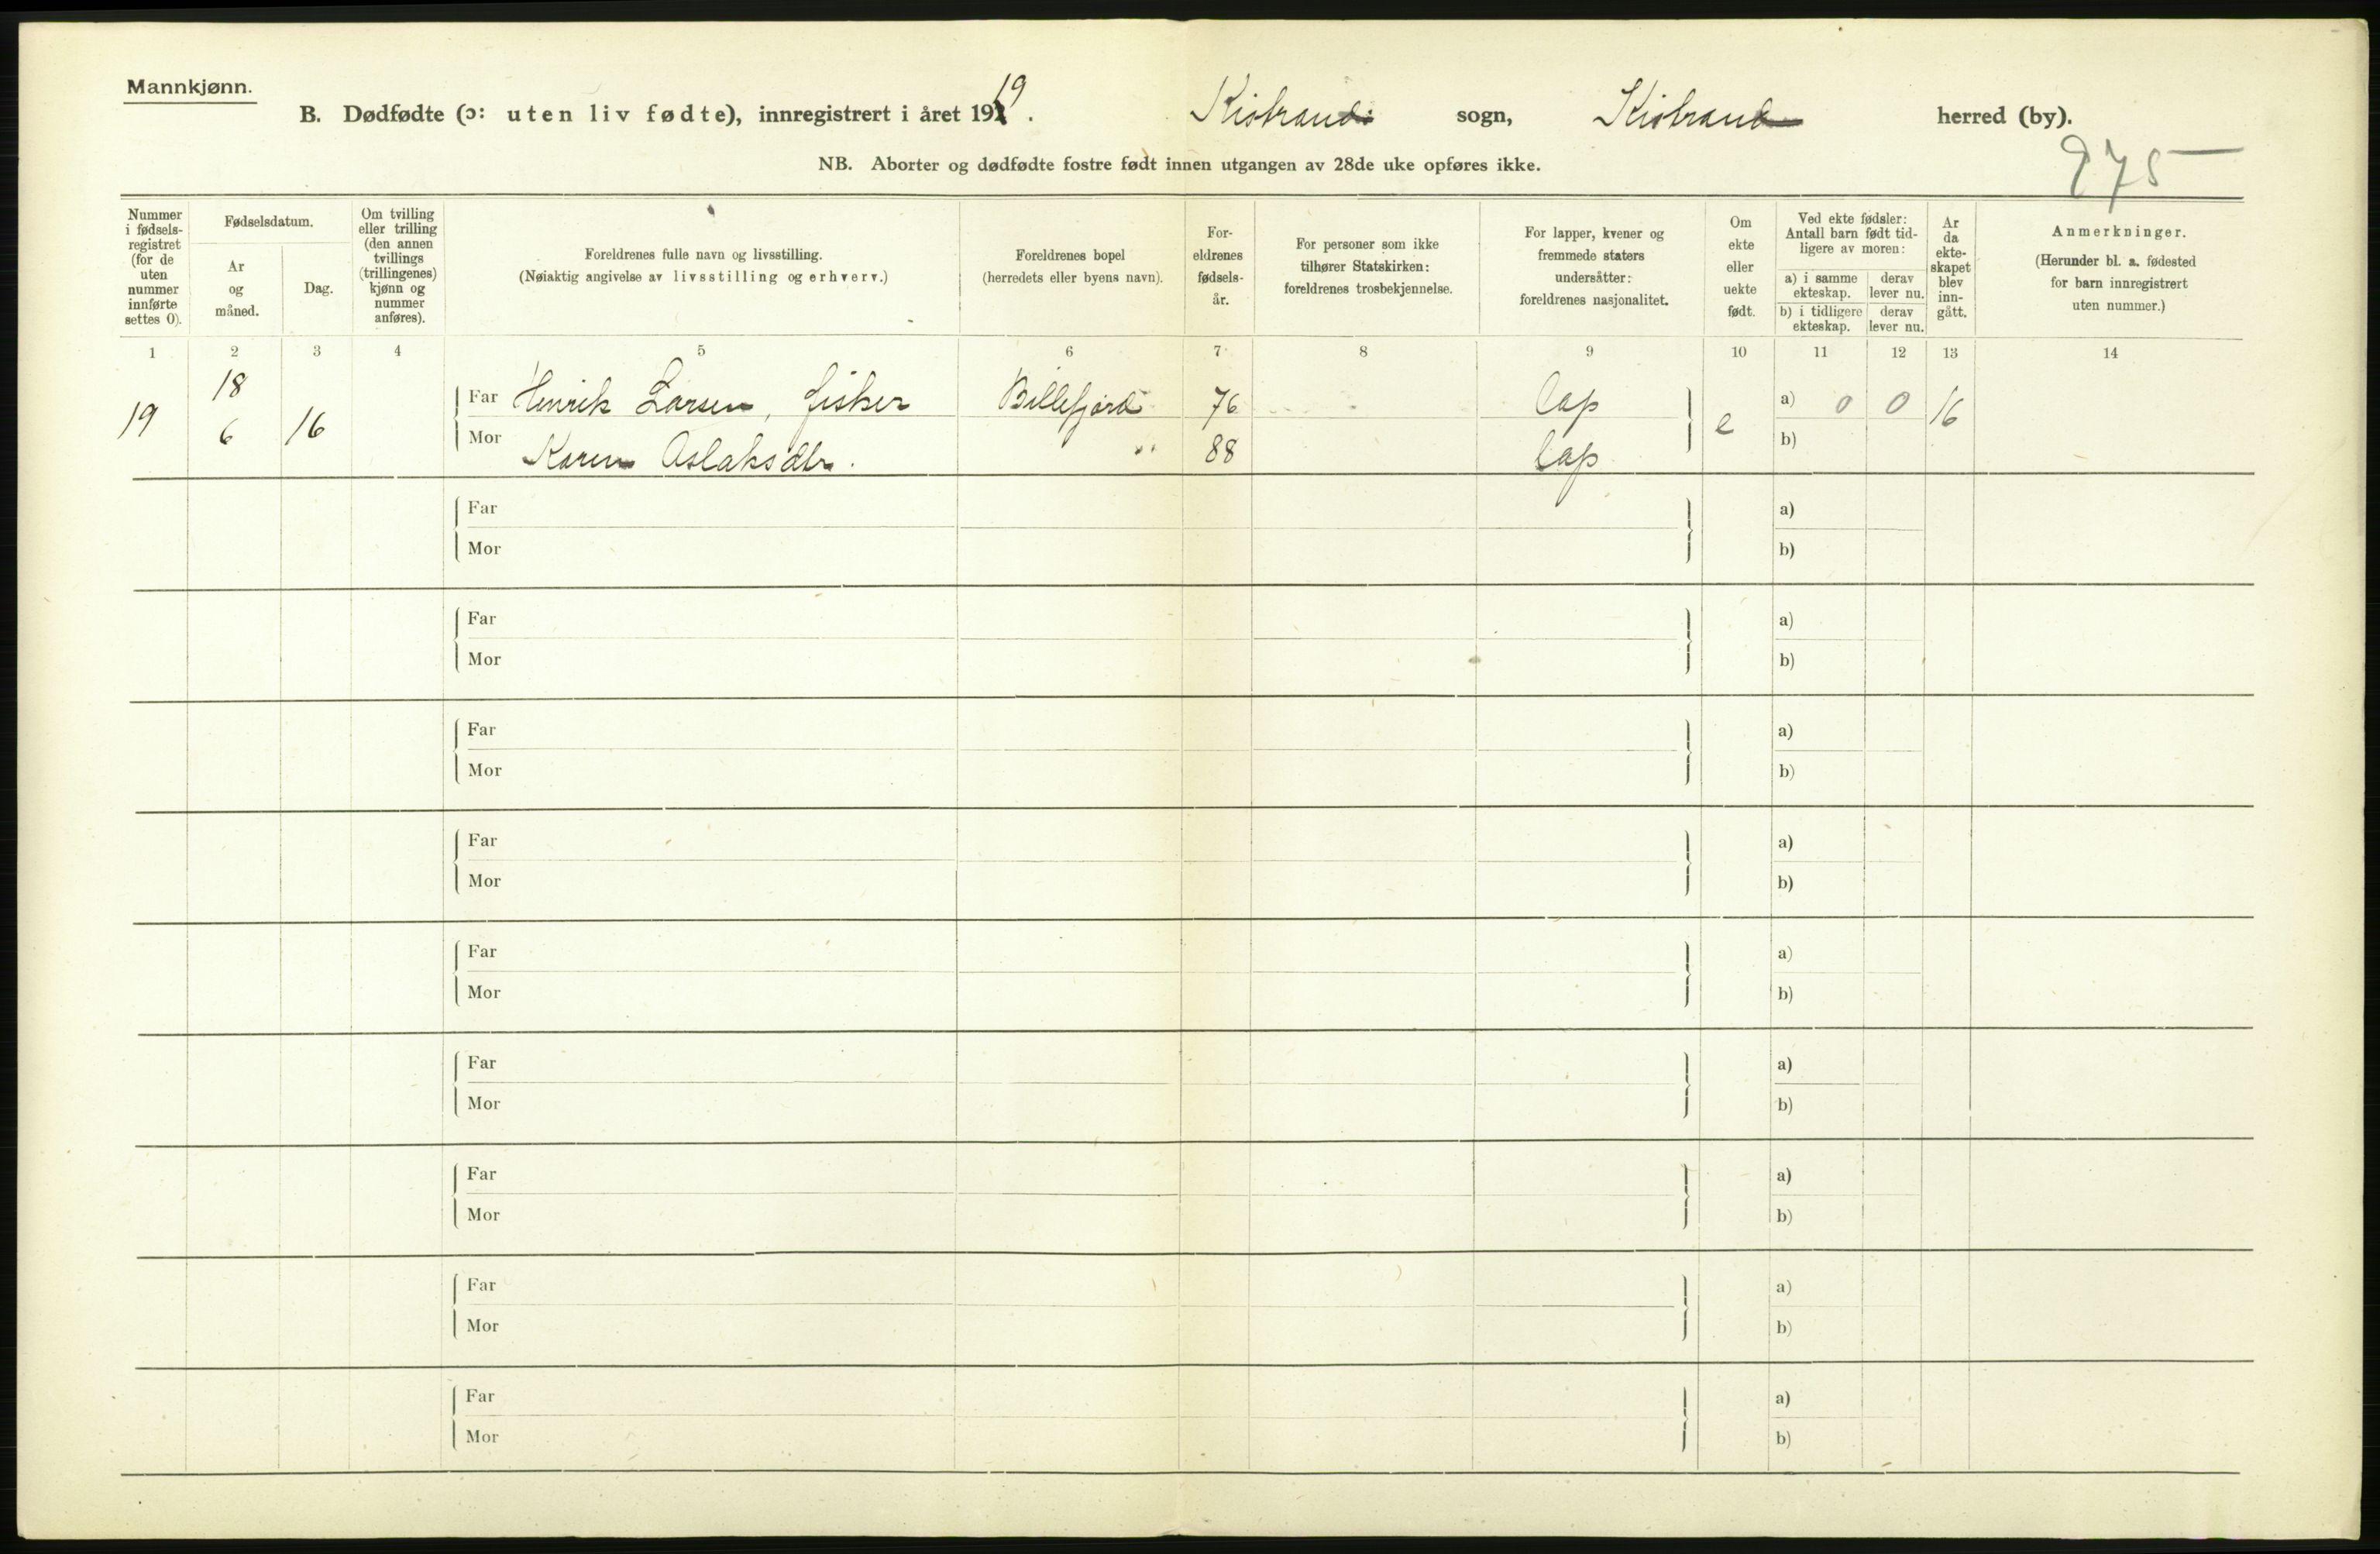 Mannkjønn.
B. Dødfødte (ɔ: uten liv fødte), innregistrert i året 1919. Kistrand sogn, Kistrand herred (by).
275
NB. Aborter og dødfødte fostre født innen utgangen av 28de uke opføres ikke.
Nummer i fødsels-registret (for de uten nummer innførte settes 0).
Fødselsdatum.
År og måned.
Dag.
Om tvilling eller trilling (den annen tvillings (trillingenes) kjønn og nummer anføres).
Foreldrenes fulle navn og livsstilling.
(Nøiaktig angivelse av livsstilling og erhverv.)
Foreldrenes bopel
(herredets eller byens navn).
For-eldrenes fødsels-år.
For personer som ikke tilhører Statskirken: foreldrenes trosbekjennelse.
For lapper, kvener og fremmede staters undersåtter: foreldrenes nasjonalitet.
Om ekte eller uekte født.
Ved ekte fødsler: Antall barn født tid-ligere av moren:
a) i samme ekteskap.
derav lever nu.
b) i tidligere ekteskap.
derav lever nu.
År da ekte-skapet blev inn-gått.
Anmerkninger.
(Herunder bl. a. fødested for barn innregistrert uten nummer.)
1 2 3 4 5 6 7 8 9 10 11 12 13 14
18
19 6 16 Far Henrik Larsen, fisker Billefjord 76 lap e a) 0 0 16
Mor Karen Aslaksdtr. " 88 lap b)
Far a)
Mor b)
Far a)
Mor b)
Far a)
Mor b)
Far a)
Mor b)
Far a)
Mor b)
Far a)
Mor b)
Far a)
Mor b)
Far a)
Mor b)
Far a)
Mor b)